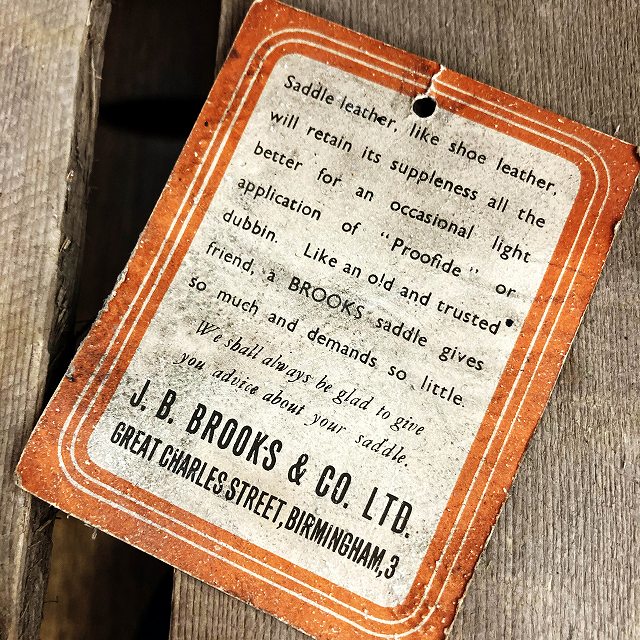 Saddle leather, like shoe leather,
will retain its suppleness all the
better for an occasional light
application of "Proofide" or
dubbin. Like an old and trusted
friend, a BROOKS saddle gives
so much and demands so little.
We shall always be glad to give
you advice about your saddle.
J. B. BROOKS & CO. LTD.
GREAT CHARLES STREET, BIRMINGHAM, 3